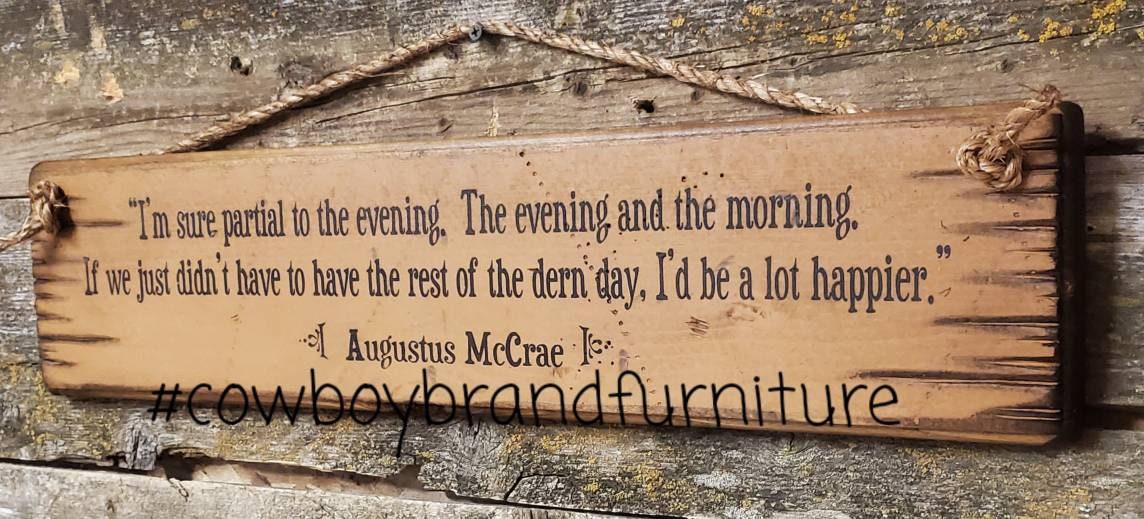 “I'm sure partial to the evening. The evening and the morning.
If we just didn't have to have the rest of the dern day, I'd be a lot happier.”
Augustus McCrae
#cowboybrandfurniture